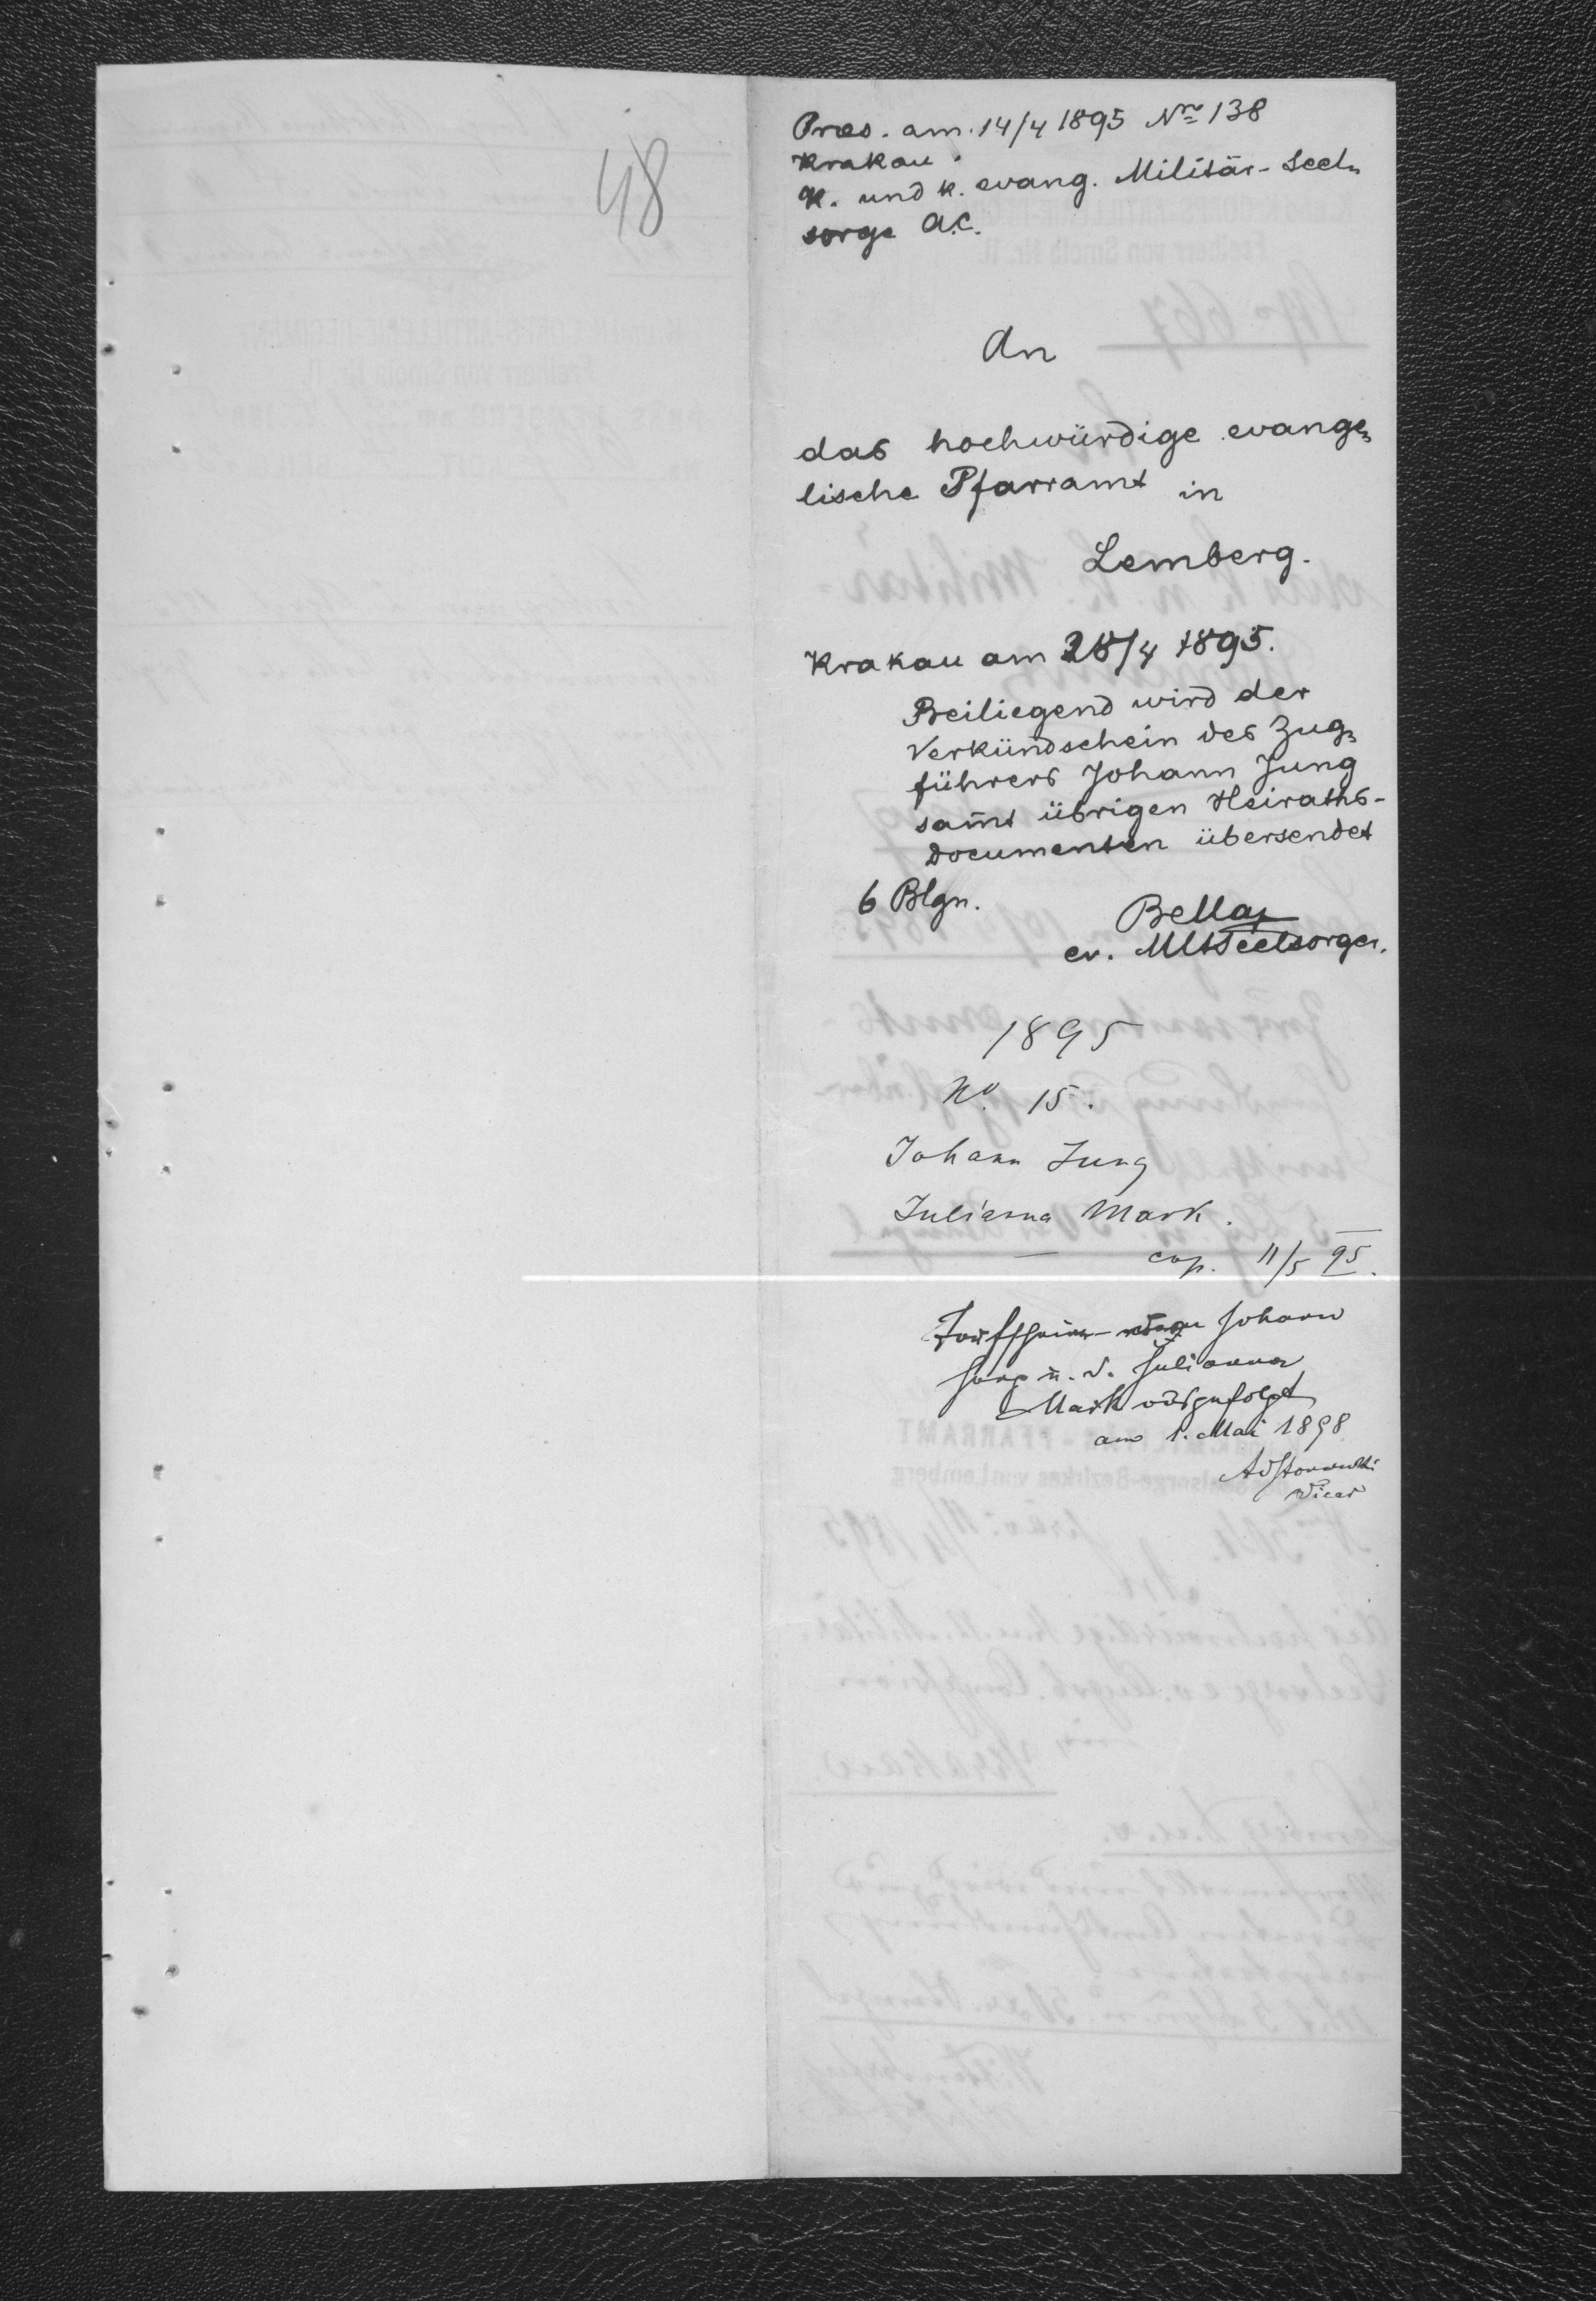 48
Pres. am 14/4 1895 Nro 138
Krakau
K. und k. evang. Militär-Seel=
sorge A.C.
An
das hochwürdige evange=
lische Pfarramt in
Lemberg.
Krakau am 28/4 1895.
Beiliegend wird der
Verkündschein des Zug=
führers Johann Jung
sam̄t übrigen Heiraths-
documenten übersendet
6 Blgn.
ev. Seelsorger.
1895
No. 15.
Johann Jung
Julianna Mark.
cop. 11/5 95.
Taufscheine Johann
Jung u. d. Julianna
Mark ausgefolgt
am 1. Mai 1898
Vicar